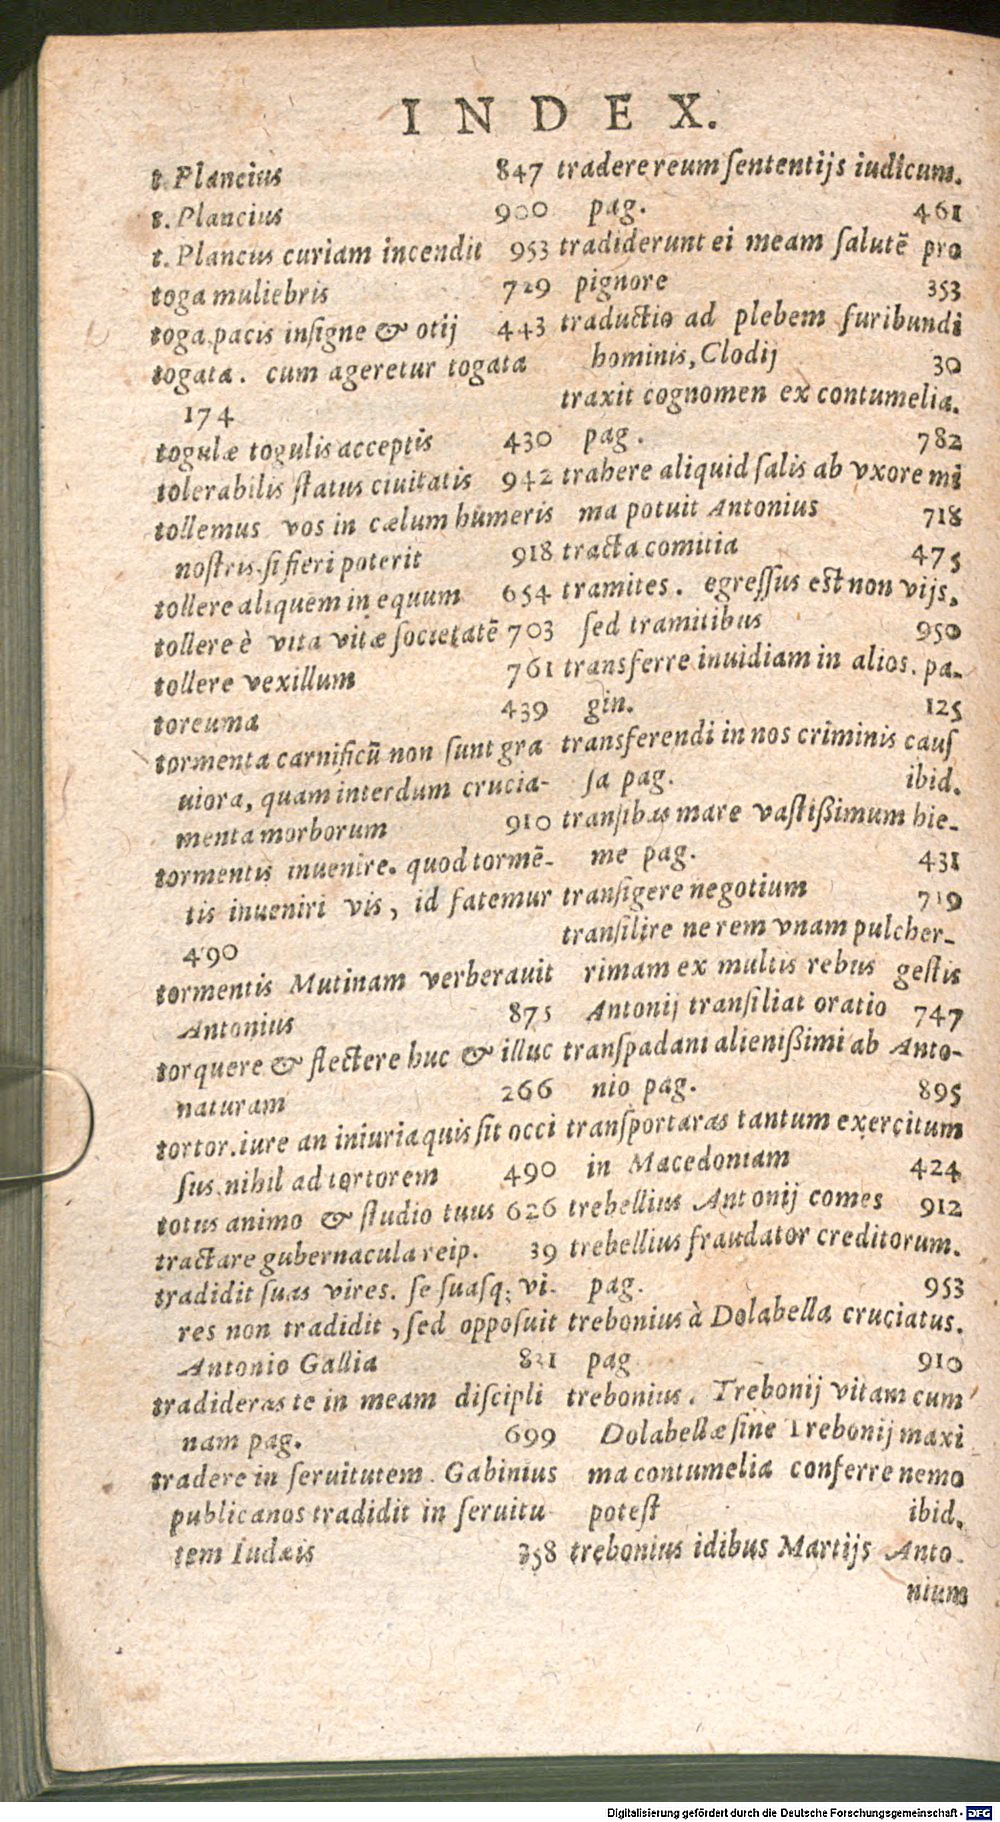 INDEX.
t. Plancius 847
t. Plancius 900
t. Plancus curiam incendit 953
toga muliebris 729
toga pacis inſigne & otij 443
togata. cum ageretur togata
174
togulæ togulis acceptis 430
tolerabilis ſtatus ciuitatis 942
tollemus vos in cælum humeris
noſtris, ſi fieri poterit 918
tollere aliquem in equum 654
tollere è vita vitæ ſocietatē 703
tollere vexillum 761
toreuma 439
tormenta carnificū non ſunt gra
uiora, quam interdum crucia-
menta morborum 910
tormentis inuenire. quod tormē-
tis inueniri vis, id fatemur
490
tormentis Mutinam verberauit
Antonius 875
torquere & flectere huc & illuc
naturam 266
tortor. iure an iniuria quis ſit occi
ſus, nihil ad tortorem 490
totus animo & ſtudio tuus 626
tractare gubernacula reip. 39
tradidit ſuas vires. ſe ſuaſq; vi-
res non tradidit, ſed oppoſuit
Antonio Gallia 821
tradideras te in meam diſcipli
nam pag. 699
tradere in ſeruitutem. Gabinius
publicanos tradidit in ſeruitu
tem Iudæis 358
tradere reum ſententijs iudicum.
pag. 461
tradiderunt ei meam ſalutē pro
pignore 353
traductio ad plebem furibundi
hominis, Clodij 30
traxit cognomen ex contumelia.
pag. 782
trahere aliquid ſalis ab vxore mi
ma potuit Antonius 718
tracta comitia 475
tramites. egreſſus eſt non vijs,
ſed tramitibus 950
transferre inuidiam in alios. pa-
gin. 125
transferendi in nos criminis cauſ
ſa pag. ibid.
tranſibas mare vaſtißimum hie-
me pag. 431
tranſigere negotium 719
tranſilire ne rem vnam pulcher-
rimam ex multis rebus geſtis
Antonij tranſiliat oratio 747
tranſpadani alienißimi ab Anto-
nio pag. 895
tranſportaras tantum exercitum
in Macedoniam 424
trebellius Antonij comes 912
trebellius fraudator creditorum.
pag. 953
trebonius à Dolabella cruciatus.
pag 910
trebonius. Trebonij vitam cum
Dolabellæ ſine Trebonij maxi
ma contumelia conferre nemo
poteſt ibid.
trebonius idibus Martijs Anto-
nium
Digitalisierung gefördert durch die Deutsche Forschungsgemeinschaft - DFG